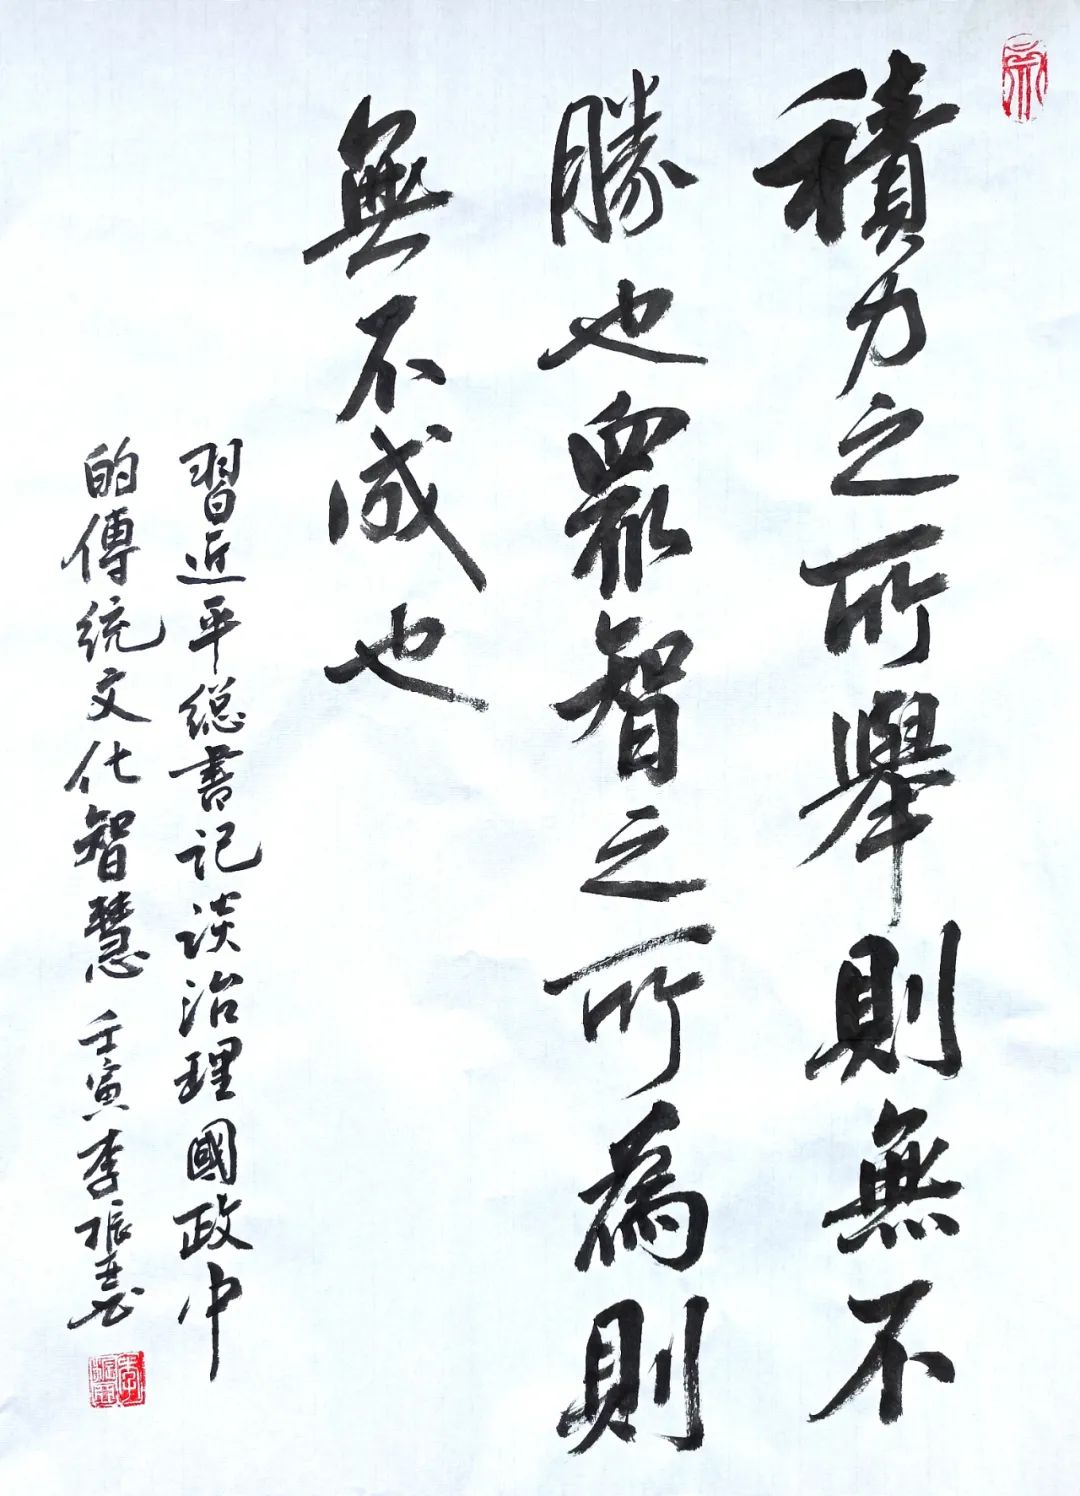 積力之所舉則無不
勝也眾智之所為則
無不成也
習近平総書记谈治理國政中
的傳統文化智慧 壬寅李振